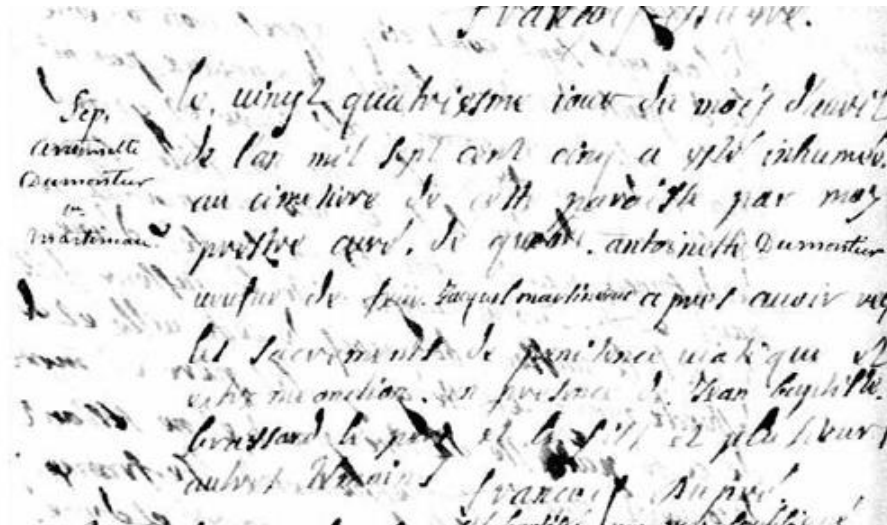 françois dupré.
Sep.
Antoinette
Dumontier
Martineau
le. uingt quatriesme iour du mois d'auril
de l'an mil sept cent cinq a esté inhumée.
au cimetiere de cette paroisse par moy
prestre curé. de quebec. antoinette Dumontier
ueufue de feu. Jacques martineau apres auoir
les sacrements de penitence uiatique et
extreme onction. en presence de Jean baptiste.
broussard le pere et le fils et plusieurs
autres temoins
françois dupré.